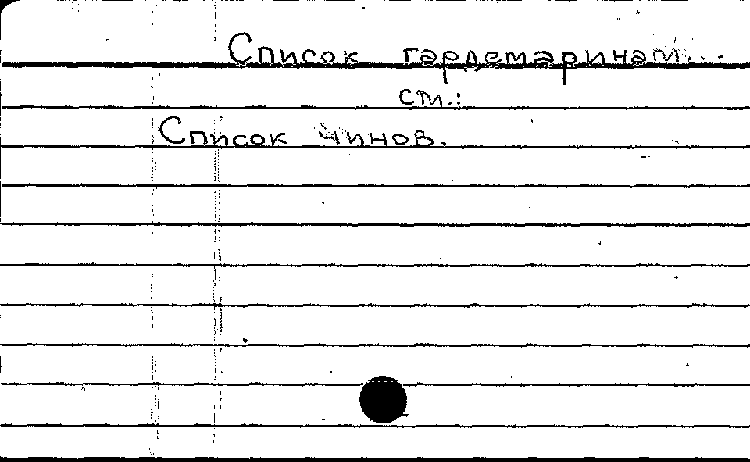 Список гардемаринам...
см.:
Список чинов.